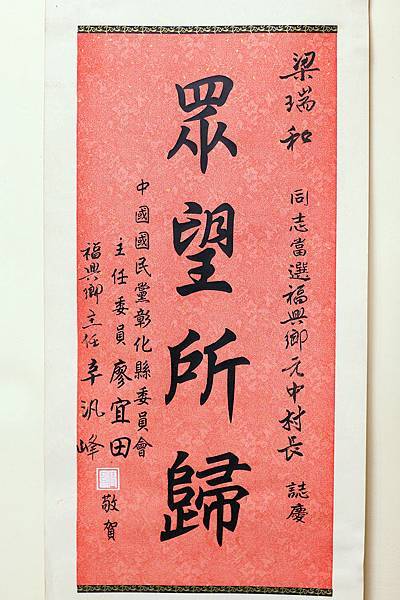 梁瑞和 同志當選福興鄉元中村長 誌慶
眾望所歸
中國國民黨彰化縣委員會
主任委員 廖宜田
福興鄉主任 辛汎峰
敬賀